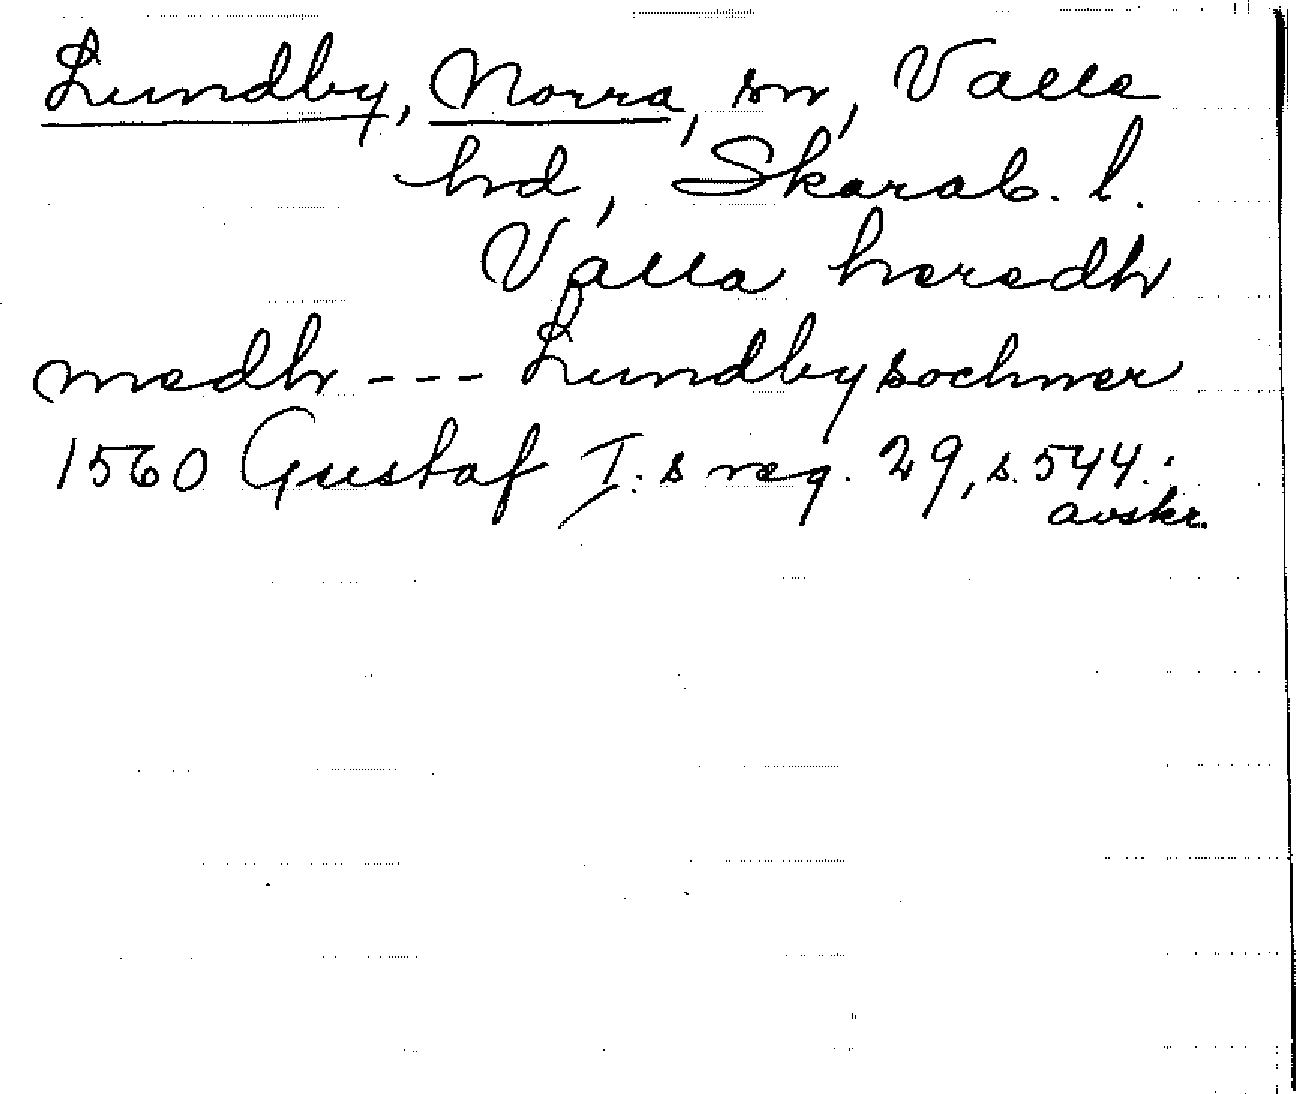 Lundby, Norra, sn, Valle
hd, Skarab. l.
Valla heredh
medh --- Lundby sochner
1560 Gustaf I:s reg. 29, s. 544.:
avskr.